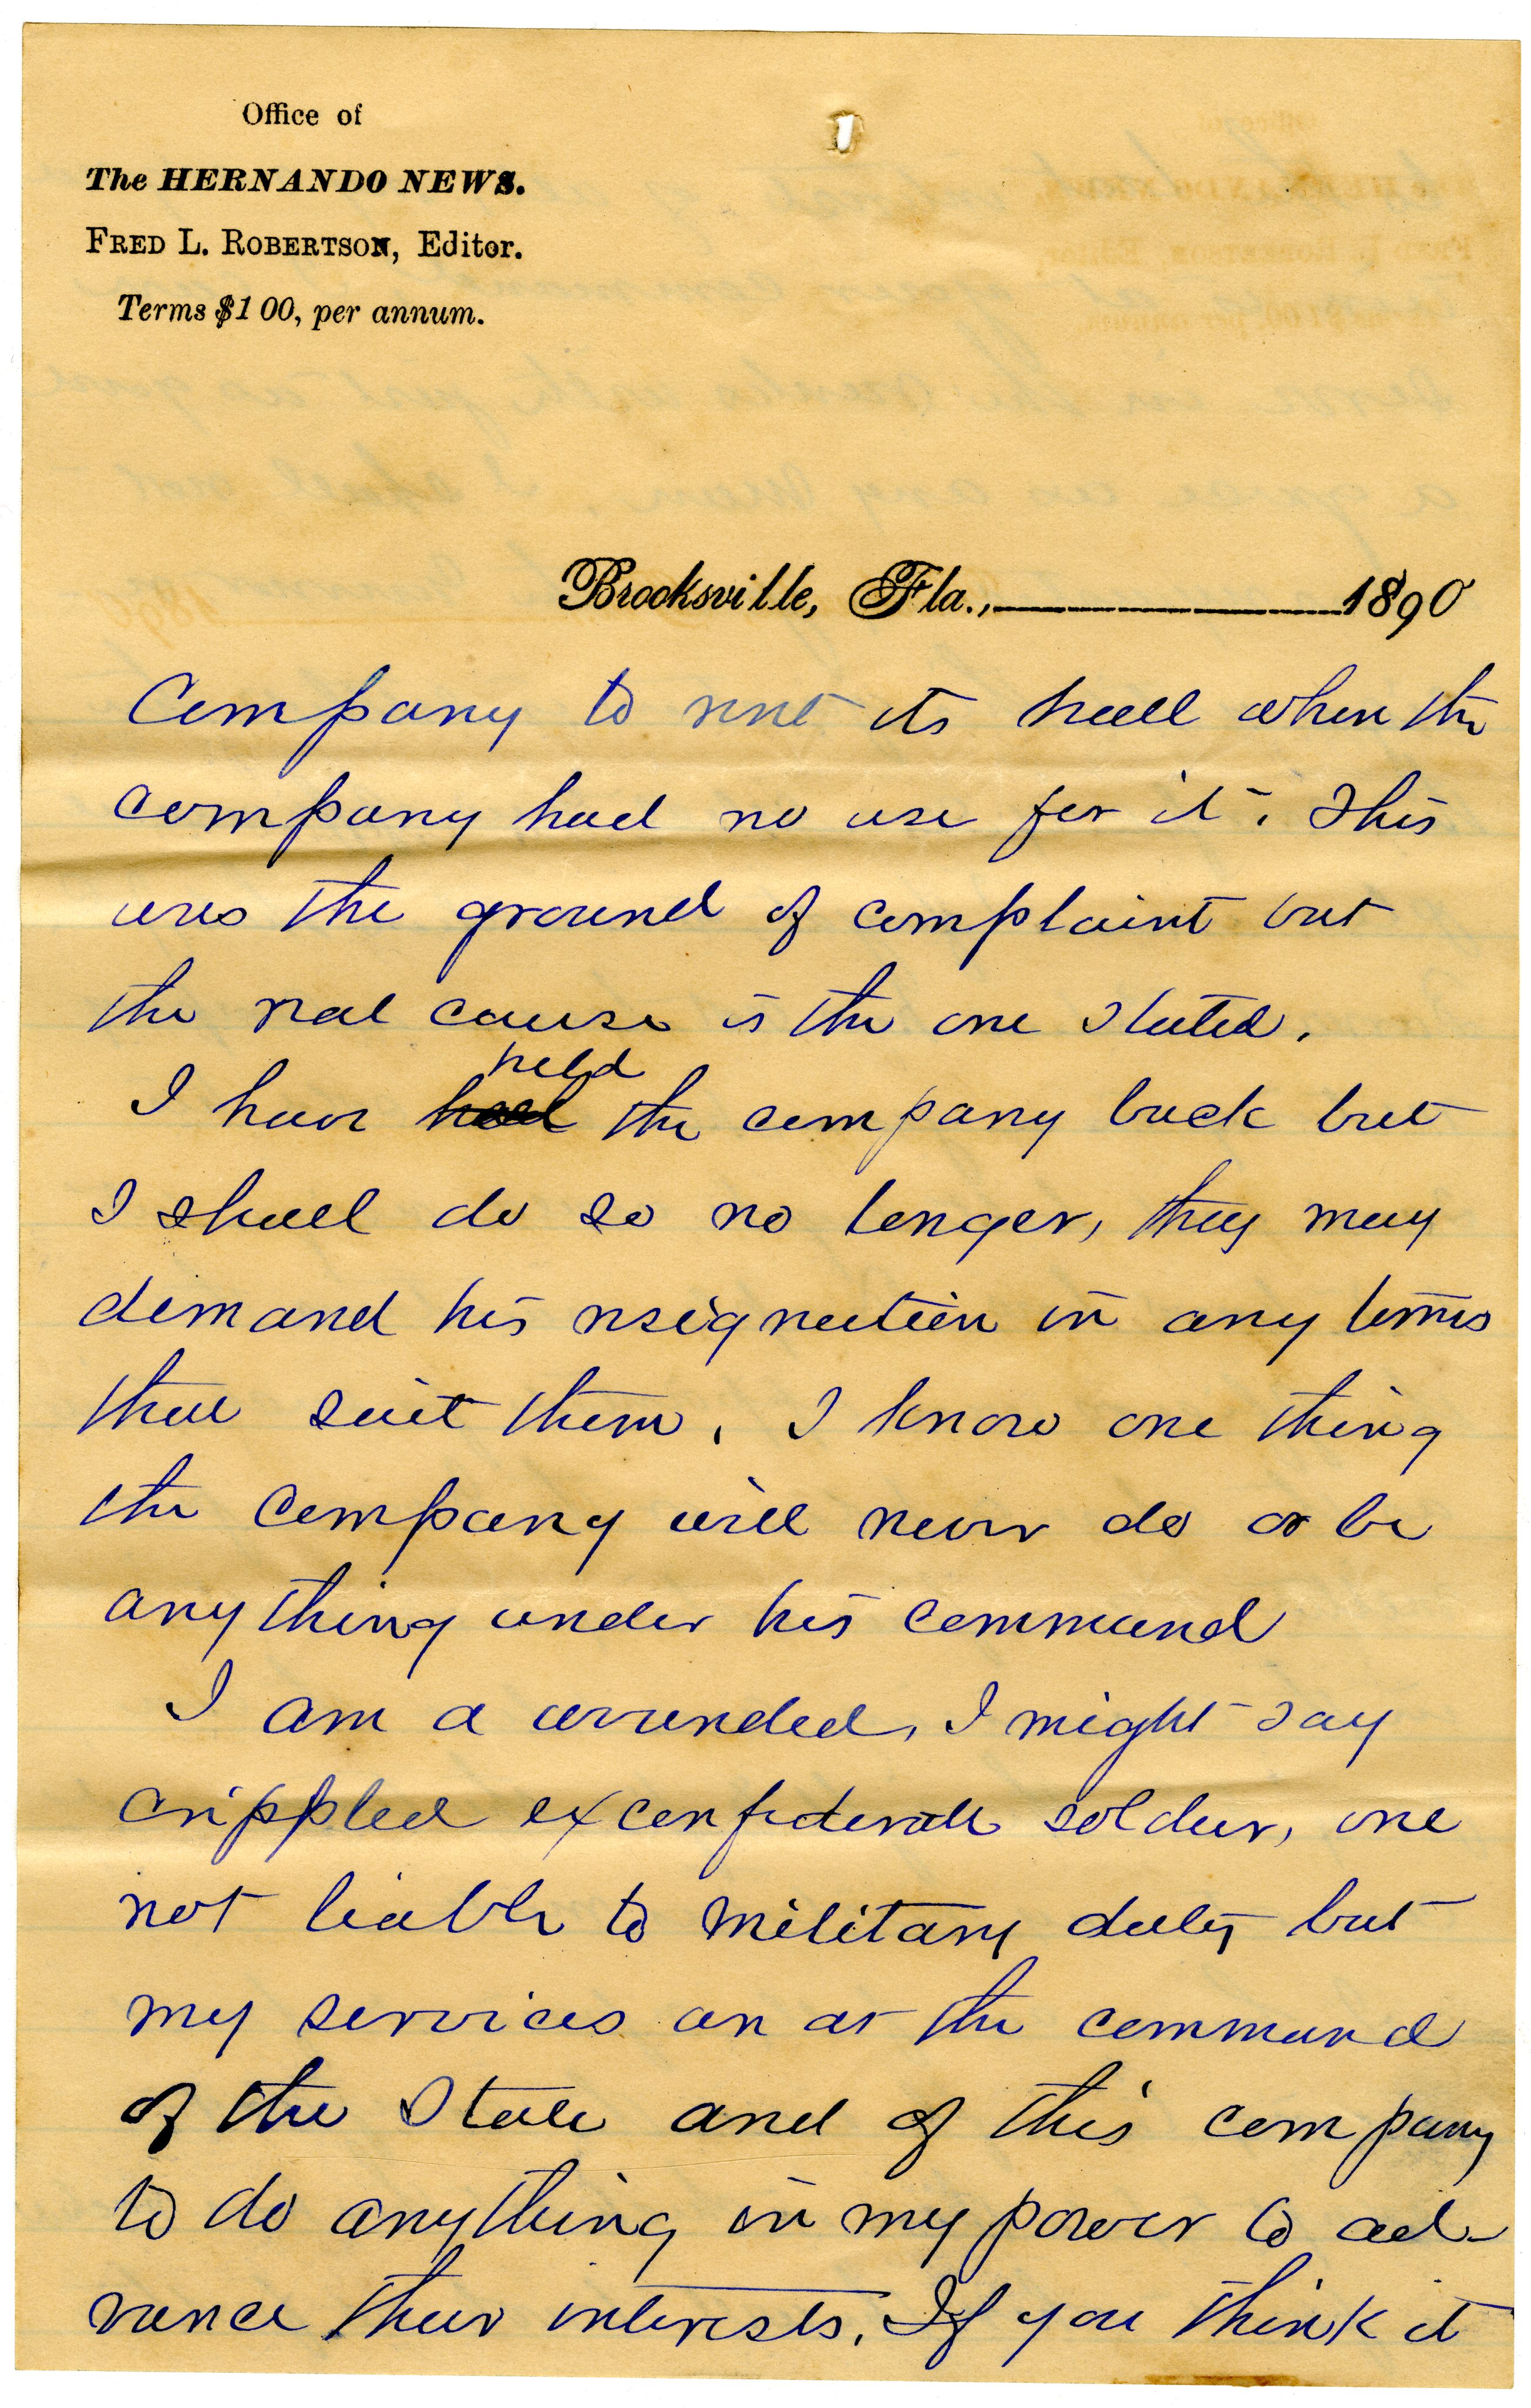 Office of
The HERNANDO NEWS.
FRED L. ROBERTSON, Editor.
Terms $1 00, per annum.
Brooksville, Fla., 1890
Company to rent its hall when the
company had no use for it. This
was the ground of complaint but
the real cause is the one stated.
held
I have had the company back but
I shall do so no longer, they may
demand his resignation in any terms
that suit them. I know one thing
the Company will never do or be
anything under his command
I am a wounded, I might say
crippled exconfederate soldier, one
not liable to military duty but
my services are at the command
of the State and of this company
to do anything in my power to ad-
vance their interests. If you think it